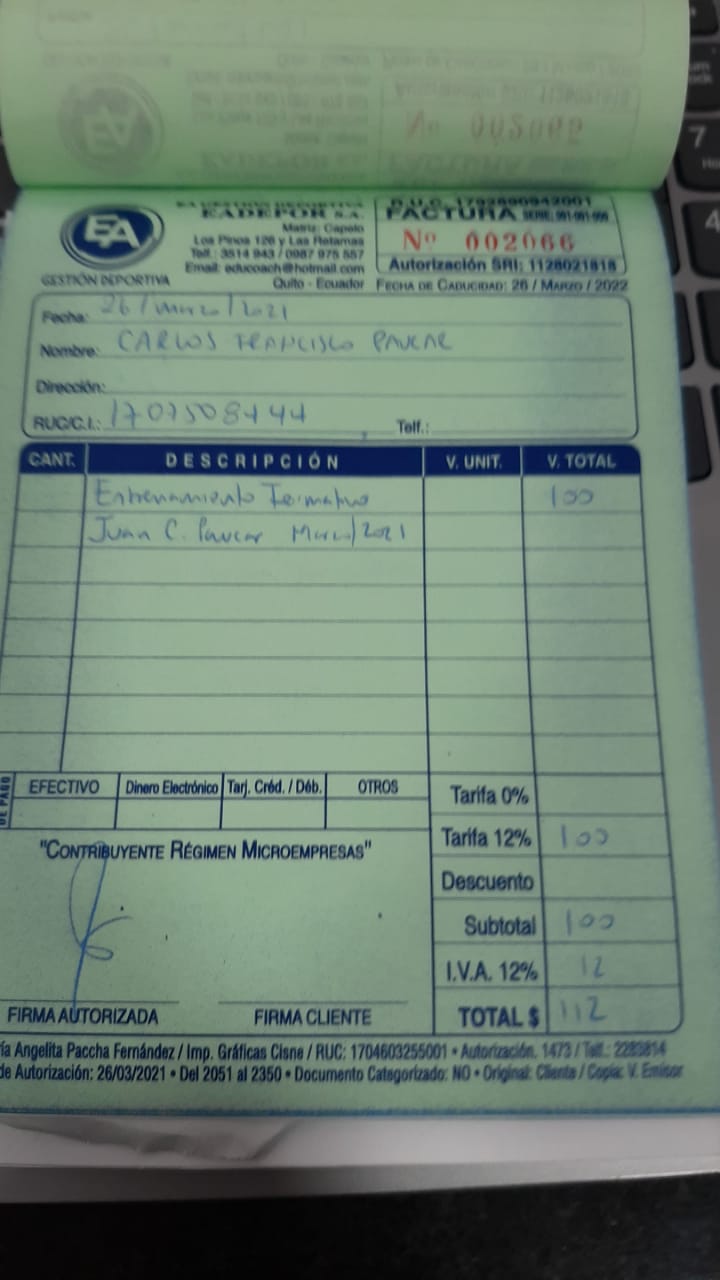 EA
GESTIÓN DEPORTIVA
EADEPOR S.A.
Matriz: Capelo
Los Pinos 126 y Las Retamas
Telf.: 3514 943 / 0987 975 557
Email: educoach@hotmail.com
Quito - Ecuador
R.U.C. 1792690942001
FACTURA SERIE: 001-001-000
Nº 002066
Autorización SRI: 1128021818
FECHA DE CADUCIDAD: 26 / MARZO / 2022
Fecha: 26/marzo/2021
Nombre: CARLOS FRANCISCO PAUCAR
Dirección:
RUC/C.I.: 1707508444 Telf.:
CANT. DESCRIPCIÓN V. UNIT. V. TOTAL
Entrenamiento Formativo 100
Juan C. Paucar Marzo/2021
DE PAGO
EFECTIVO Dinero Electrónico Tarj. Créd. / Déb. OTROS
Tarifa 0%
Tarifa 12% 100
"CONTRIBUYENTE RÉGIMEN MICROEMPRESAS"
Descuento
Subtotal 100
I.V.A. 12% 12
TOTAL $ 112
FIRMA AUTORIZADA FIRMA CLIENTE
ía Angelita Paccha Fernández / Imp. Gráficas Cisne / RUC: 1704603255001 • Autorización. 1473 / Telf.: 2283814
de Autorización: 26/03/2021 • Del 2051 al 2350 • Documento Categorizado: NO • Original: Cliente / Copia: V. Emisor